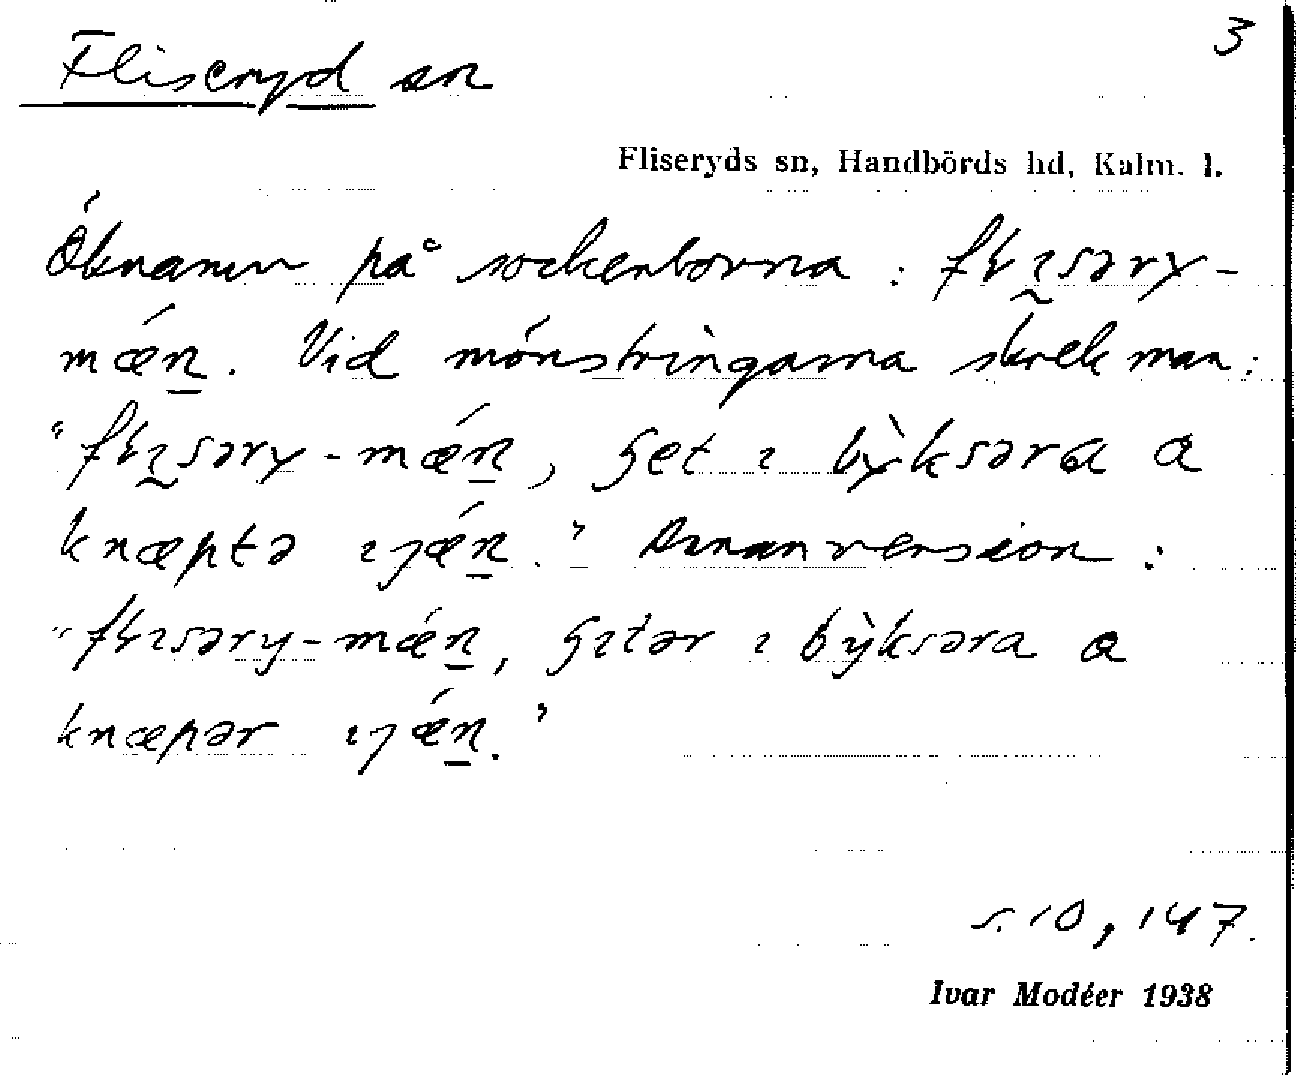 3
Fliseryd sn
Fliseryds sn, Handbörds hd, Kalm. l.
Öknamn på sockenborna: fłɪsəry-
mǽn̲. Vid mönstringarna skrek man:
"fłɪsəry-mǽn̲, get ɪ bỳksəra a
knæptə ɪjǽn̲." Annan version:
"fłɪsəry-mǽn̲, gɪtər ɪ bỳksəra a
knæpər ɪjǽn̲."
s. 10, 147.
Ivar Modéer 1938